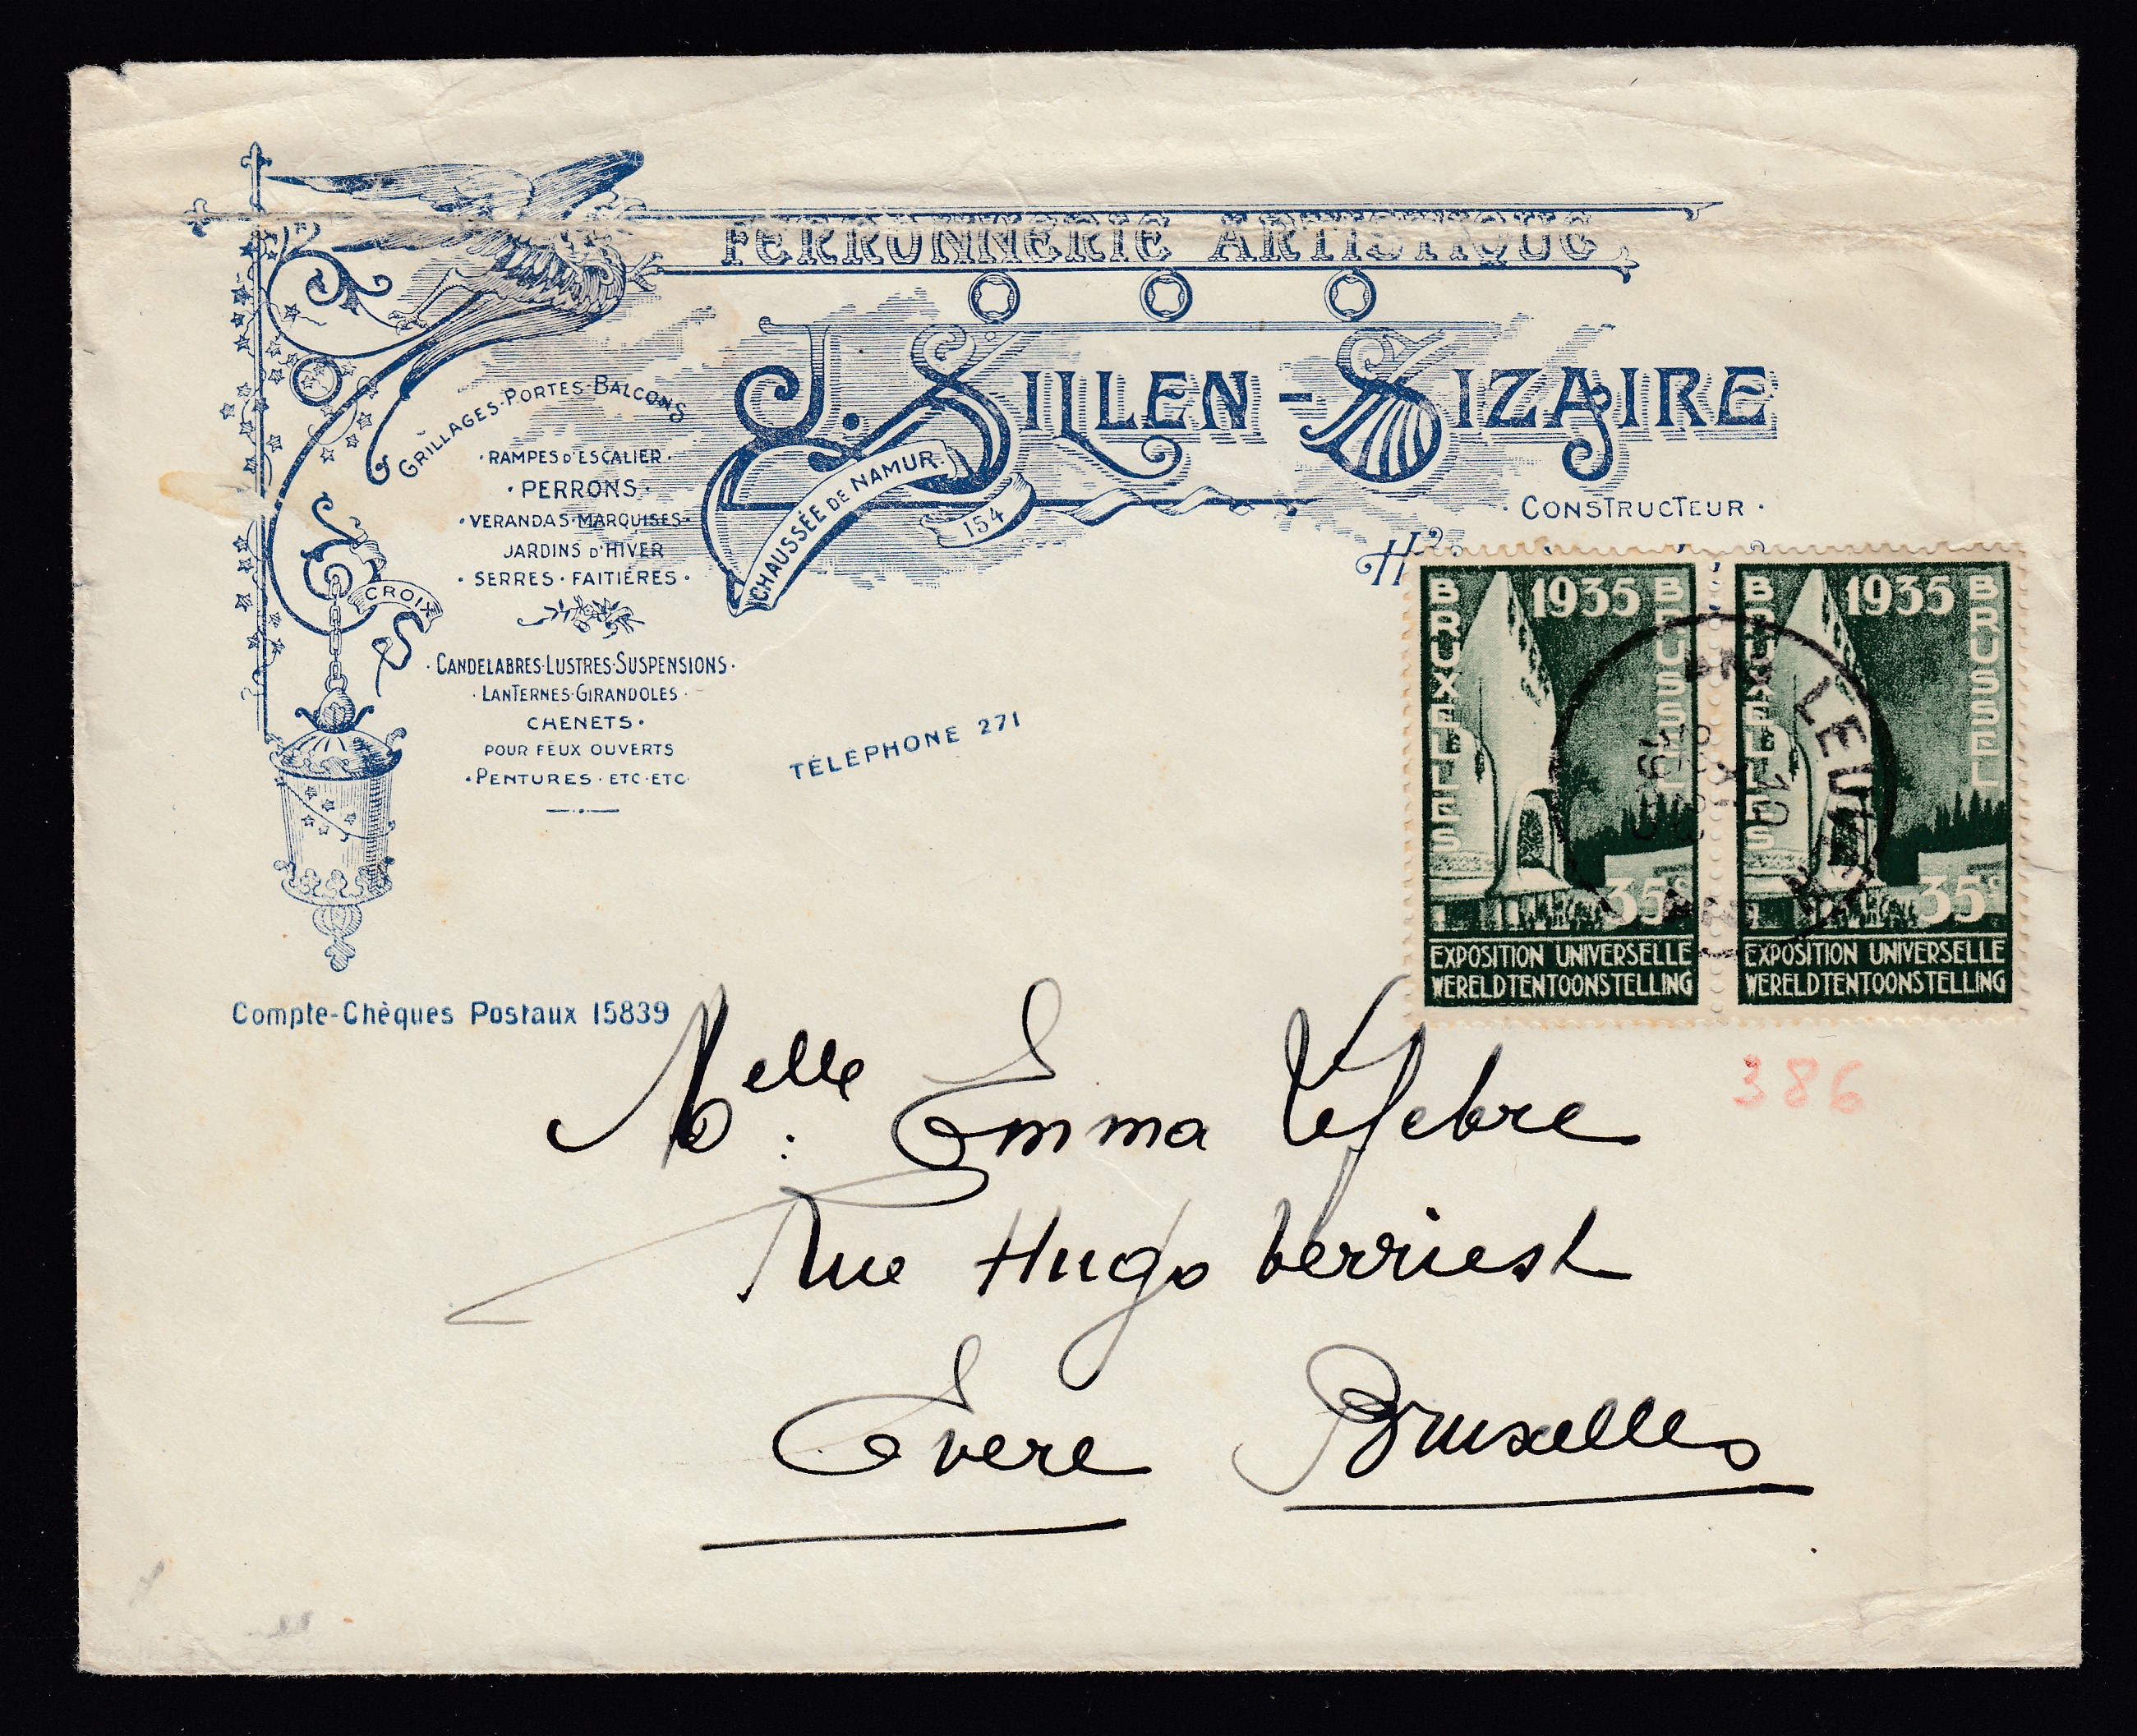 FERRONNERIE ARTISTIQUE
J. SILLEN-SIZAIRE
CHAUSSÉE DE NAMUR. 154
· CONSTRUCTEUR ·
GRILLAGES·PORTES·BALCONS
·RAMPES D'ESCALIER·
·PERRONS·
·VERANDAS·MARQUISES·
JARDINS D'HIVER
·SERRES·FAITIÈRES·
CROIX
·CANDELABRES·LUSTRES·SUSPENSIONS·
·LANTERNES·GIRANDOLES·
CHENETS·
POUR FEUX OUVERTS
·PENTURES·ETC·ETC·
TÉLÉPHONE 271
Compte-Chèques Postaux 15839
BRUXELLES 1935 BRUSSEL
35c
EXPOSITION UNIVERSELLE
WERELDTENTOONSTELLING
BRUXELLES 1935 BRUSSEL
35c
EXPOSITION UNIVERSELLE
WERELDTENTOONSTELLING
386
Melle. Emma Lefebre
Rue Hugo Verriest
Evere Bruxelles